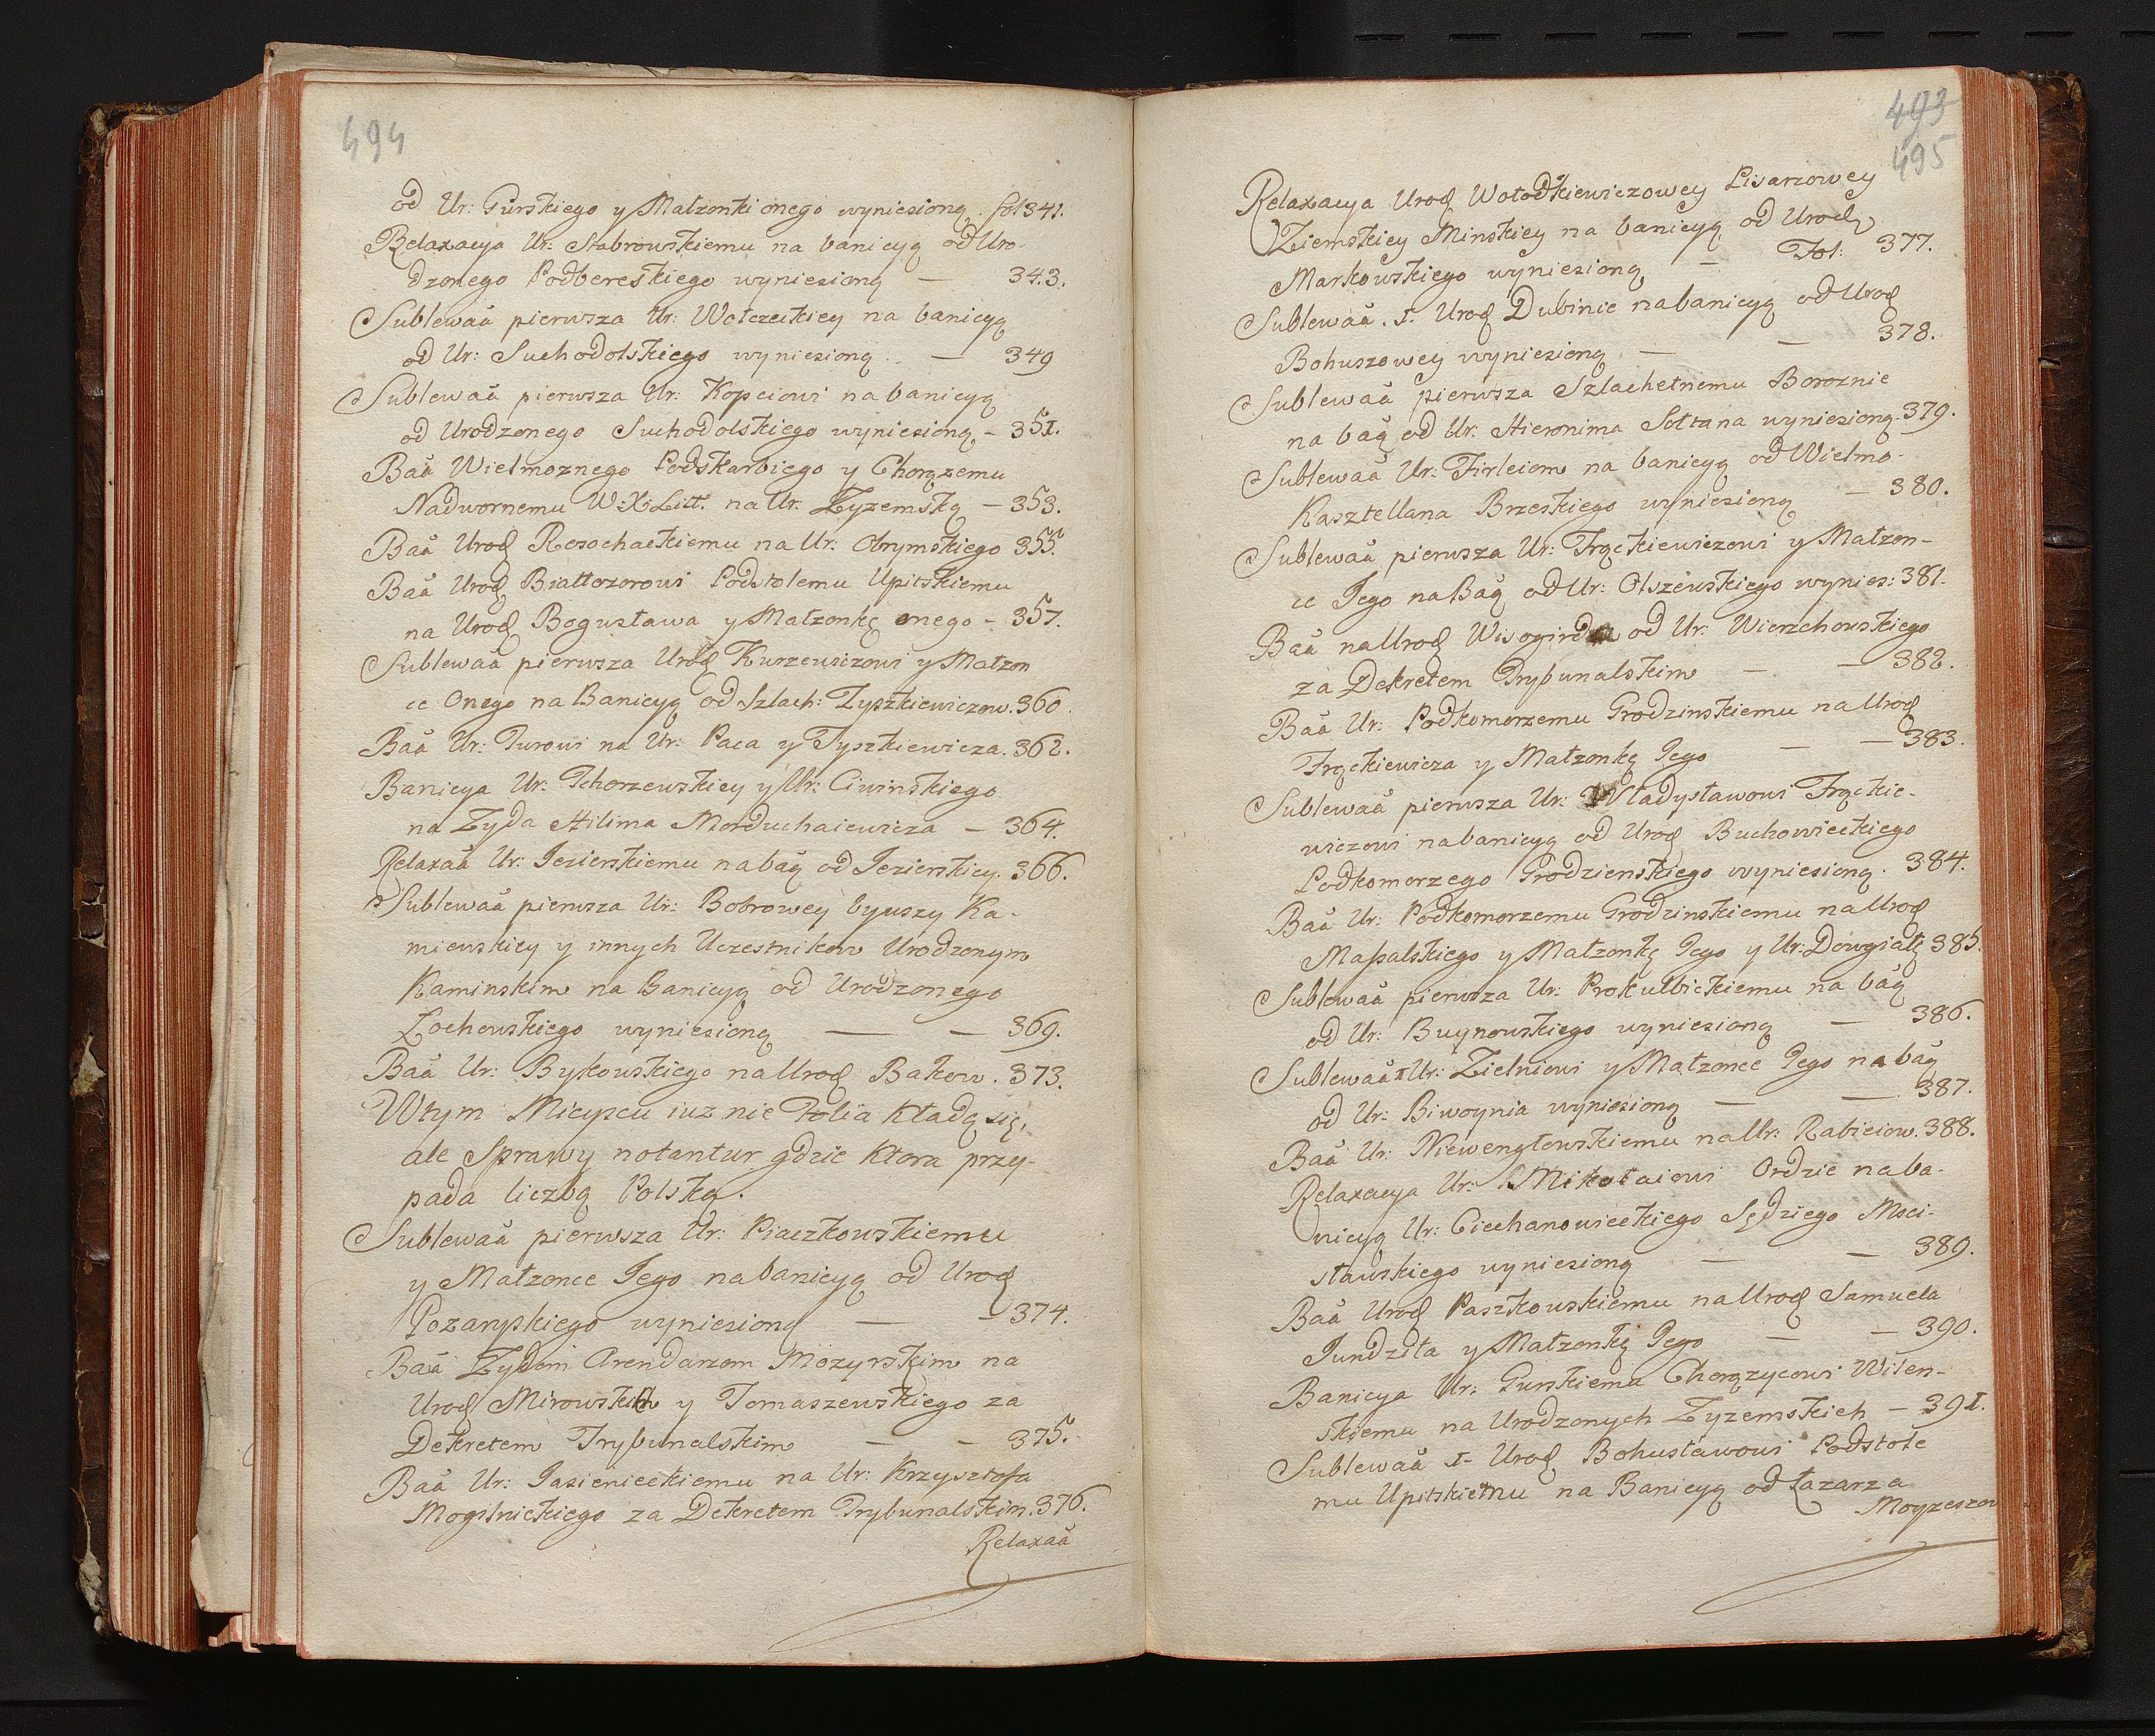 494
od Ur: Gurskiego y Małzonki onego wyniesioną. fol 341.
Relaxacya Ur: Stabrowskiemu na banicyą od Uro-
dzonego Podbereskiego wyniesioną — 343.
Sublewaã pierwsza Ur: Wołczeckiey na banicyą
od Ur: Suchodolskiego wyniesioną — 349
Sublewaã pierwsza Ur: Kopciowi na banicyą
od Urodzonego Suchodolskiego wyniesioną - 351.
Baã Wielmoznego Podskarbiego y Chorązemu
Nadwornemu W.X.Litt. na Ur. Zyzemską - 353.
Baã Urod Rosochackiemu na Ur. Obrymskiego 355.
Baã Urod Białłozorowi Podstolemu Upitskiemu
na Urod Bogusława y Małzonkę onego - 357.
Sublewaã pierwsza Urod Kurzewiczowi y Małzon
ce Onego na Banicyą od Szlach: Zyszkiewiczow. 360.
Baã Ur: Turowi na Ur: Paca y Tyszkiewicza. 362.
Banicya Ur: Tchorzewskiey y Ur: Ciwinskiego
na Zyda Hilima Morduchaiewicza - 364.
Relaxaã Ur: Jezierskiemu na baą od Jezierskiey. 366.
Sublewaã pierwsza Ur: Bobrowey bywszy Ka-
miewskiey y innych Uczestnikow Urodzonym
Kaminskim na Banicyą od Urodzonego
Zochowskiego wyniesioną — — 369.
Baã Ur: Bykowskiego na Urod Bakow. 373.
W tym Mieyscu iuz nie Folia kładą się,
ale Sprawy notantur gdzie ktora przy-
pada liczbą Polską.
Sublewaã pierwsza Ur: Piaczkowskiemu
y Małzonce Jego na banicyą od Urod
Pozaryskiego wyniesioną — - 374.
Baã Zydom Arendarzom Mozyrskim na
Urod Mirowskich y Tomaszewskiego za
Dekretem Trybunalskim — - 375.
Baã Ur: Jasienieckiemu na Ur: Krzysztofa
Mogilnickiego za Dekretem Trybunalskim. 376.
Relaxaã
493
495
Relaxacya Urod Wołodkiewiczowey Pisarzowey
Ziemskiey Minskiey na banicyą od Urod
Markowskiego wyniesioną - Fol: 377.
Sublewaã. I. Urod Dubinie na banicyą od Urod
Bohuszowey wyniesioną — — 378.
Sublewaã pierwsza Szlachetnemu Boroznie
na baą od Ur. Hieronima Sołtana wyniesioną. 379.
Sublewaã Ur: Firleiom na banicyą od Wielmo-
Kasztellana Brzeskiego wyniesioną — 380.
Sublewaã pierwsza Ur: Frąckiewiczowi y Małzon-
ce Jego na Baą od Ur: Olszewskiego wynies: 381.
Baã na Urod od Ur. Wierzchowskiego
za Dekretem Trybunalskim — — 382.
Baã Ur: Podkomorzemu Grodzinskiemu na Urod
Frąckiewicza y Małzonkę Jego — — 383.
Sublewaã pierwsza Ur: Władysławowi Frąckie-
wiczowi na banicyą od Urod Buchowieckiego
Podkomorzego Grodzienskiego wyniesioną. 384.
Baã Ur: Podkomorzemu Grodzinskiemu na Urod
Massalskiego y Małzonkę Jego y Ur: Dowgiałę 385.
Sublewaã pierwsza Ur: Prokulbickiemu na baą
od Ur: Buynowskiego wyniesioną — 386.
Sublewaã I Ur: Zielniowi y Małzonce Jego na baą
od Ur: Biwoynia wyniesioną — — 387.
Baã Ur: Niewengłowskiemu na Ur: Rabieiow. 388.
Relaxacya Ur: Mikołaiowi Ordzie na ba-
nicyą Ur: Ciechanowieckiego Sędziego Msci-
sławskiego wyniesioną — — 389.
Baã Urod Paszkowskiemu na Urod Samuela
Jundziła y Małzonkę Jego — — 390.
Banicya Ur: Gurskiemu Chorązycowi Wilen-
skiemu na Urodzonych Zyzemskich - 391.
Sublewaã I- Urod Bohusławowi Podstole
mu Upitskiemu na Banicyą od Łazarza
Moyzeszow